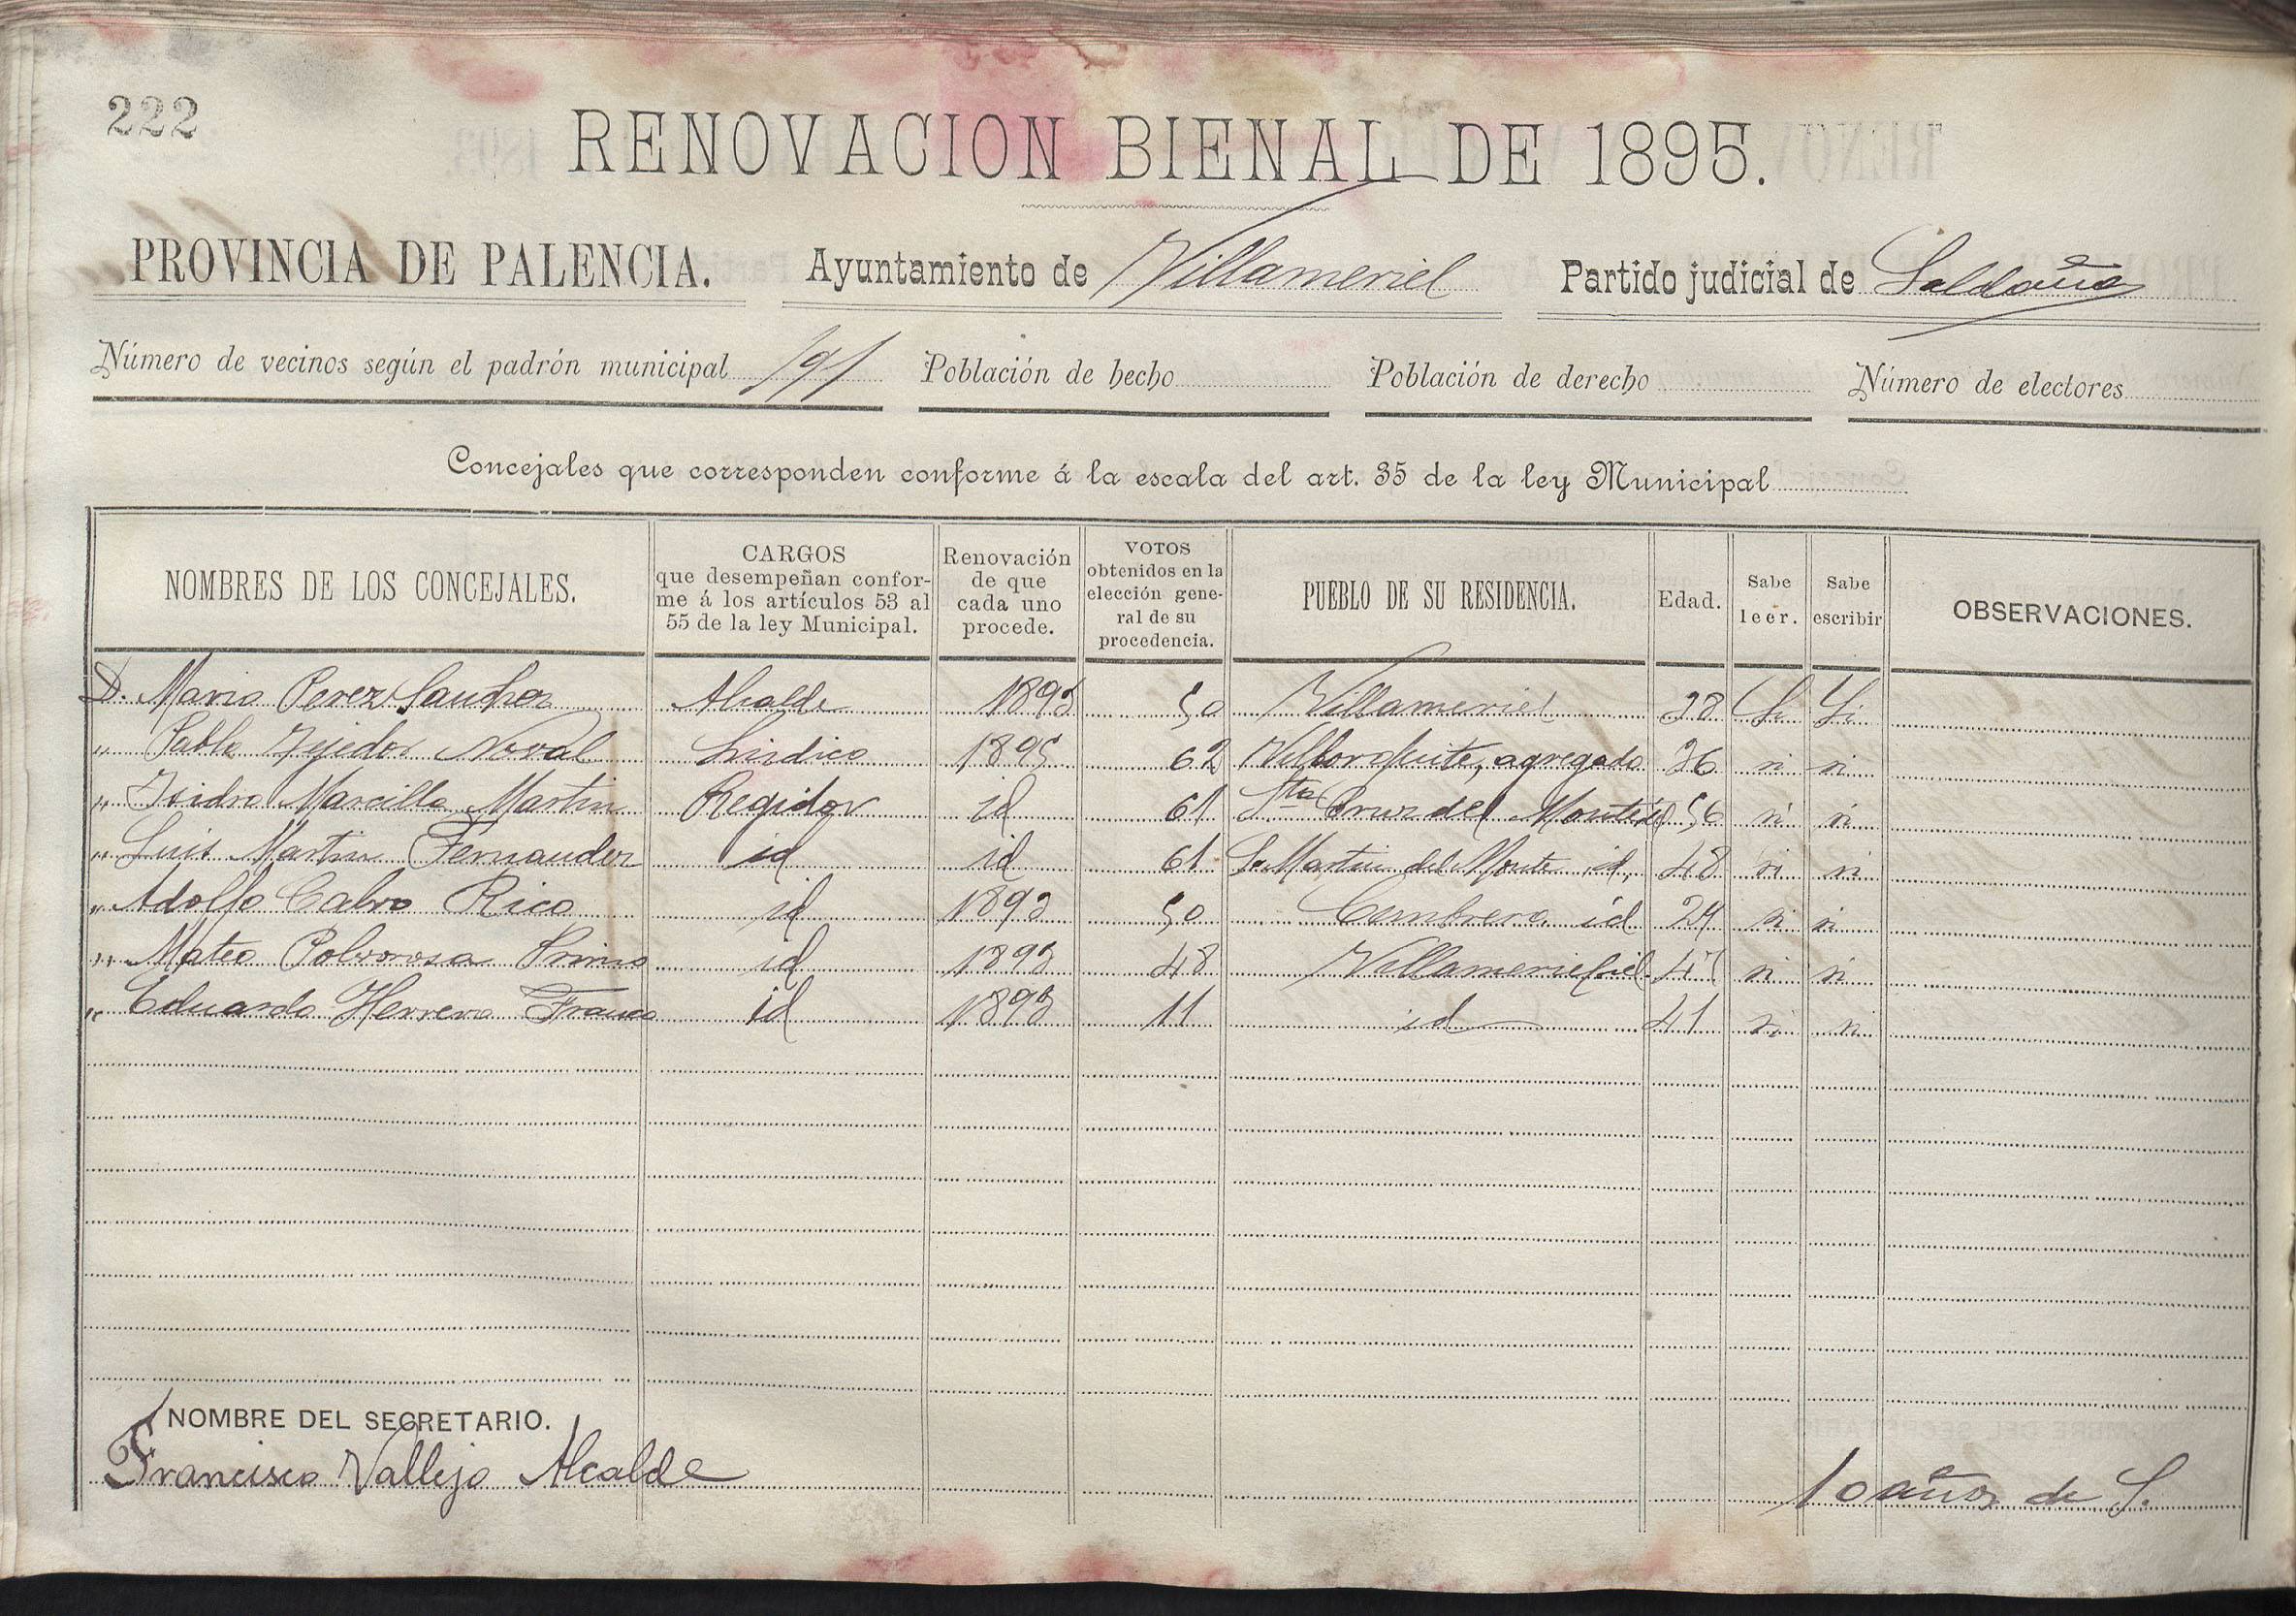 222
RENOVACION BIENAL DE 1895.
PROVINCIA DE PALENCIA. Ayuntamiento de Villameriel Partido judicial de Saldaña
Número de vecinos según el padrón municipal 191 Población de hecho Población de derecho Número de electores
Concejales que corresponden conforme á la escala del art. 35 de la ley Municipal
NOMBRES DE LOS CONCEJALES.
CARGOS
que desempeñan confor-
me á los artículos 53 al
55 de la ley Municipal.
Renovación
de que
cada uno
procede.
VOTOS
obtenidos en la
elección gene-
ral de su
procedencia.
PUEBLO DE SU RESIDENCIA.
Edad.
Sabe
leer.
Sabe
escribir
OBSERVACIONES.
D. Mario Perez Sanchez Alcalde 1893 50 Villameriel 38 Si Si
" Pablo Tejedor Noval Sindico 1895 62 agregado 36 si si
" Isidro Marcilla Martin Regidor id 61 Sta Cruz del Monte id 56 si si
" Luis Martin Fernandez id id 61 S. Martin del Monte id, 48 si si
" Adolfo Calvo Rico id 1893 50 Cembrero id 29 si si
" Mateo Polvorosa Primo id 1893 48 Villameriel id 47 si si
" Eduardo Herrero Franco id 1893 11 id 41 si si
NOMBRE DEL SECRETARIO.
Francisco Vallejo Alcalde 10 años de S.